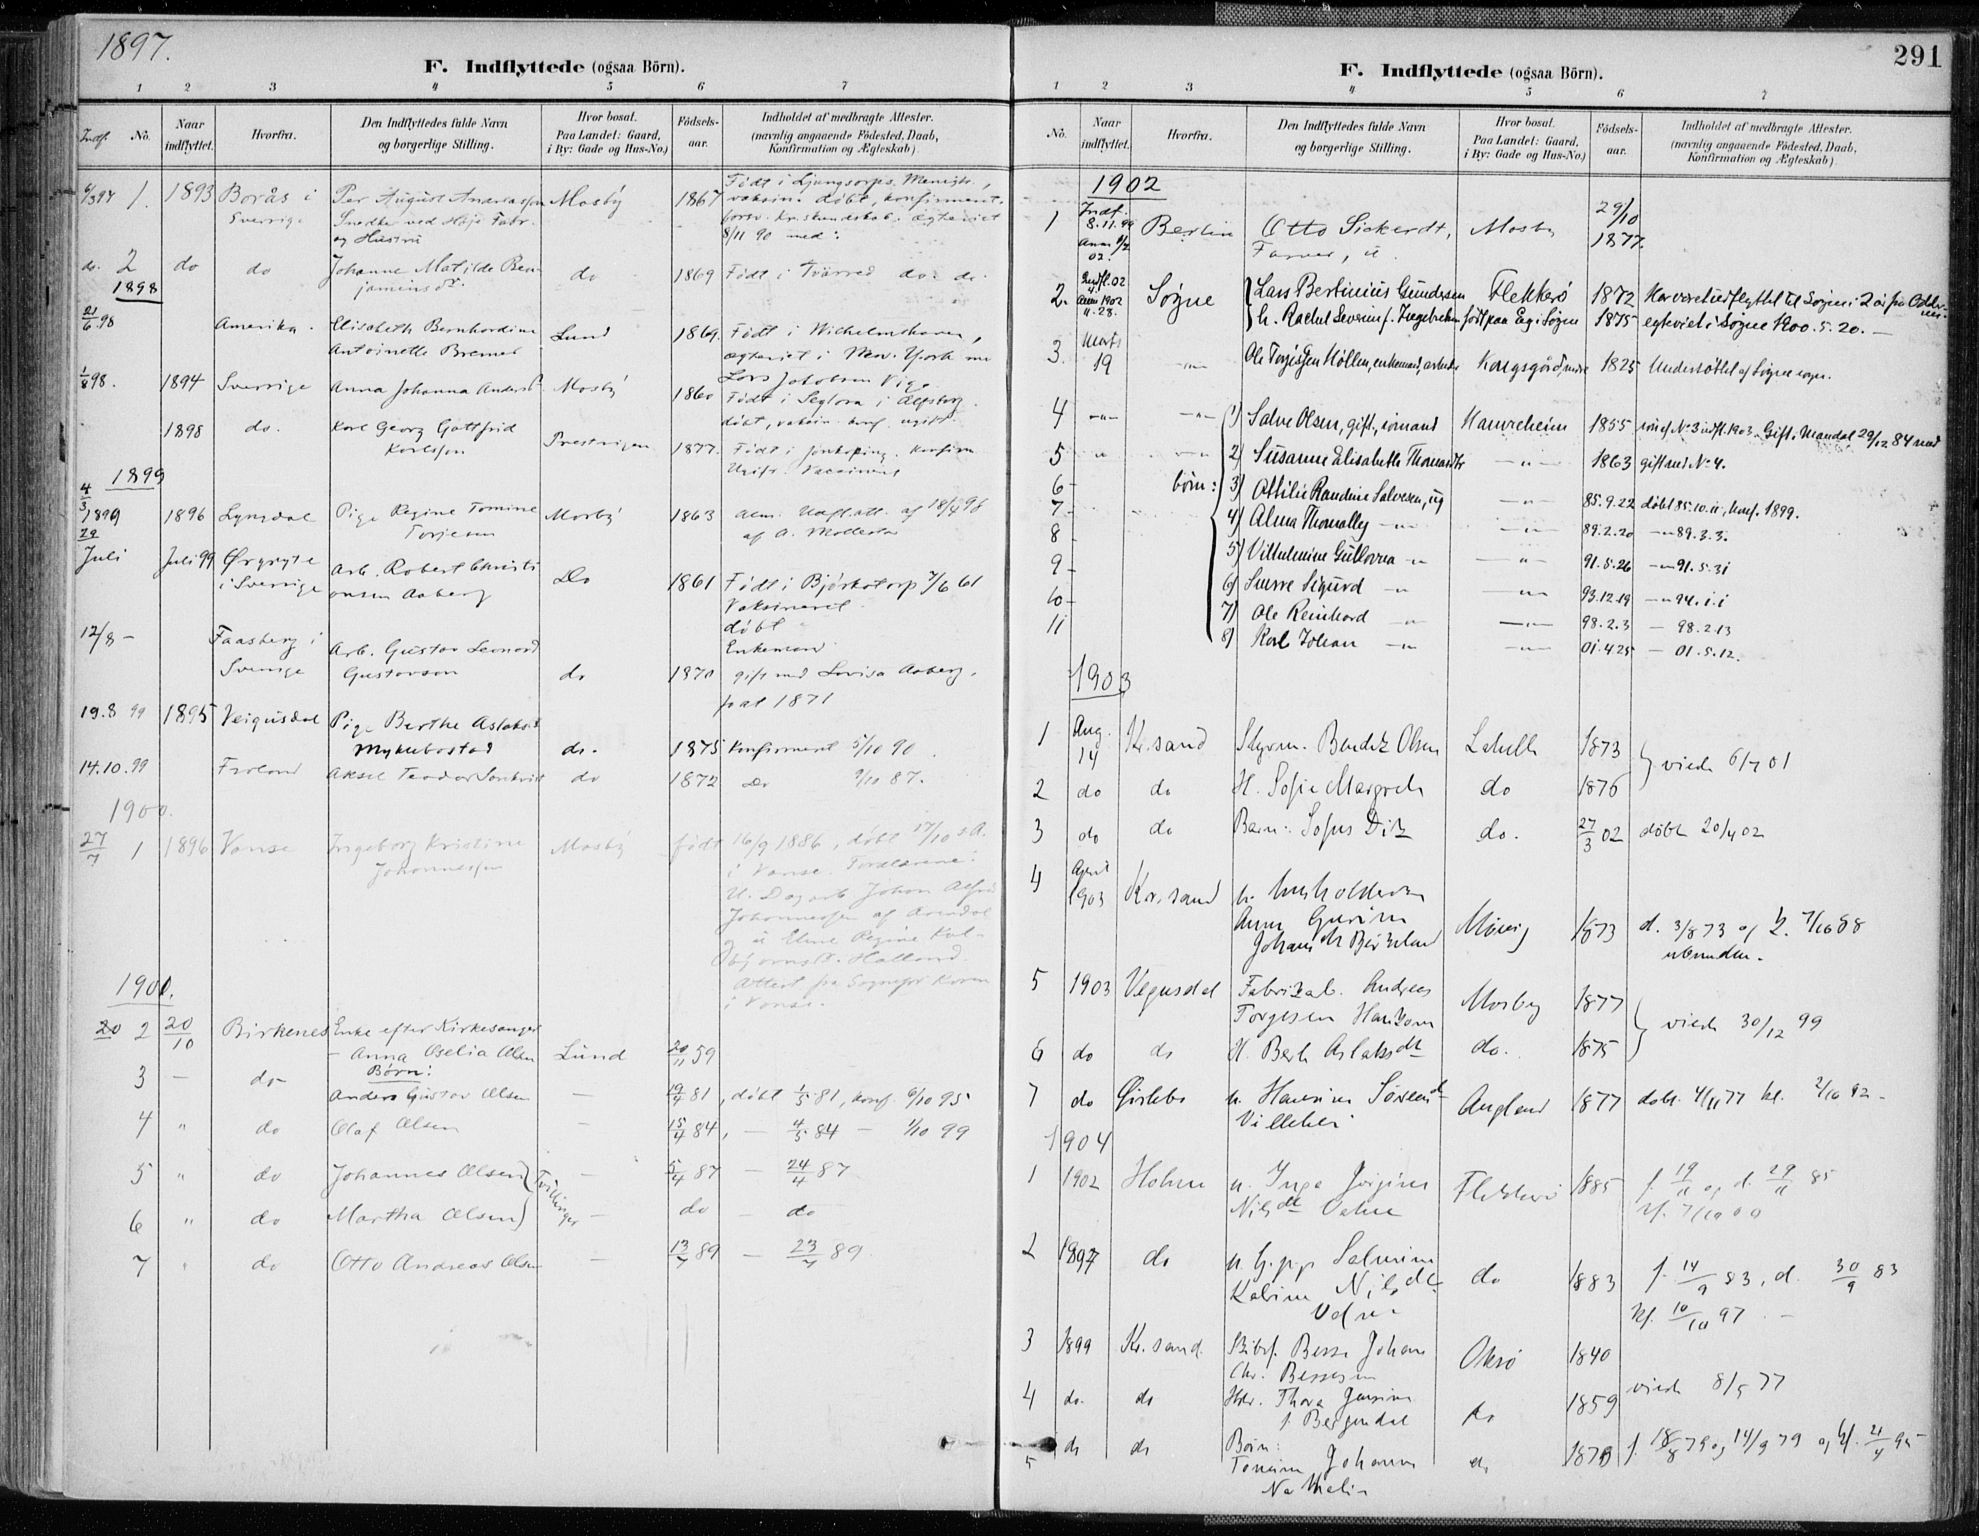 1897.
F. Indflyttede (ogsaa Börn).
1 2 3 4 5 6 7
Indf. No. Naar indflyttet. Hvorfra. Den Indflyttedes fulde Navn og borgerlige Stilling. Hvor bosat. Paa Landet: Gaard, i By: Gade og Hus-No.) Födsels-aar. Indholdet af medbragte Attester. (navnlig angaaende Födested, Daab, Konfirmation og Ægteskab)
1. 1893 Borås i Per August Andreasson Mosby 1867 Født i
Sverrige Snedker ved Høje Fabr.
og Hustru 8/11 90 med:
do. 2 do do Johanne Matilde Ben- do 1869 Født i Tvärred do. do.
jaminsdr.
1898
21/6 98 Amerika. Elisabeth Bernhardine Lund 1869. Født i Wilhelmshaven,
Antoinette Bremel ægteviet i New York m
Lars Jakobsen Vige
1/8 98. 1894 Sverrige Anna Johanna Andersd. Mosby 1860 Født i Seglora i Elfsborg.
døbt, vaksin. konf. ugift.
1898 do. Karl Georg Gottfrid 1877. Født i Jønkøping. Konfirm
Karlsson Ugift. Vaccinert
1899
4/3 1899 1896 Lyngdal Pige Regine Tomine Mosby 1863 Alm. Udfl.att. af 18/4 98
Torjesen af A. Mollestad
29 Juli Juli 99 Ørgryte Arb. Robert Christi Do 1861 Født i Björketorp 7/6 61
i Sverrige onsen Aaberg Vaksineret
døbt
Enkemand
12/8 - Faasberg i Arb. Gustav Leonard
Sverrige Gustavson do 1870 gift med Lovisa Aaberg,
f. at 1871
19.8 99 1895 Veigusdal Pige Berthe Aslaksd.
Myklebostad do. 1875 Konfirmeret 5/10 90
14.10.99 Froland Aksel Teodor do 1872 Do 9/10 87.
1900.
27/7 1 1896 Vanse Ingeborg Kristine Mosby født 16/9 1886, døbt 17/10 s.A.
Johannessen i Vanse. Forældrene:
U. Dagarb Johan Alfred
Johannessen af Arendal
og u Eline Regine Kol-
bjørnsd. Halland.
Attest fra Sogneprest
i Vanse.
1900.
20 2 20/10 Birkenes Enke efter Kirkesanger
- Anna Oselia Olsen Lund 20/11 59
Børn:
3 — do Anders Gustav Olsen — 19/4 81, døbt 1/5 81, konf. 6/10 95
4 " do Olaf Olsen — 15/4 84, — 4/5 84 — 1/10 99
5 " do Johannes Olsen } Tvillinger — 5/4 87 — 24/4 87
6 " do Martha Olsen } — do — do
7 " do Otto Andreas Olsen — 13/7 89 — 23/7 89.
291
F. Indflyttede (ogsaa Börn).
1 2 3 4 5 6 7
No. Naar indflyttet. Hvorfra. Den Indflyttedes fulde Navn og borgerlige Stilling. Hvor bosat. Paa Landet: Gaard, i By: Gade og Hus-No.) Födsels-aar. Indholdet af medbragte Attester. (navnlig angaaende Födested, Daab, Konfirmation og Ægteskab)
1902
1 Indf. 8.11.99 Berlin Otto Sickerdt, Mosby 29/10 1877.
Farver, u.
2. Indfl. 02 Søgne Lars Bertinius Gundersen Flekkerø 1872 Har været udflyttet til Søgne i 2 år fra
h. Rachel Severine f. Ingebretsen født paa Eg i Søgne 1875 egteviet i Søgne 1900.5.20. —
3. Marts 19 —"— Ole Torgissen Møllen, enkemand, arbeider Kongsgård 1825 Understøttet af Søgne sogn.
4 —"— —"— 1) Salve Olsen, gift, sømand Hamreheim 1855 Gift i Mandal 29/12 84 med
5 " —"— 2) Susanne Elisabeth Thomasdtr —"— 1863 gift med No 4.
6 børn: 3) Ottilie Randine Salvesen, ug —"— 85.9.22 døbt 85.10.11, konf. 1899.
7 4) Alma Thomally —"— —"— 89.2.20 —"— 89.3.3.
8 5) Vilhelmine Gullovva —"— —"— 91.5.26 —"— 91.5.31
9 6) Sverre Sigurd —"— —"— 93.12.19 —"— 94.1.1
10 7) Ole Reinhard —"— —"— 98.2.3 — 98.2.13
11 8) Karl Johan —"— —"— 01.4.25 — 01.5.12.
1903
1 Aug. 14 Kr.sand Styrm. Bendik Olsen 1873 } viede 6/7 01
2 do do H. Sofie Margrete do 1876
3 do do Barn: Sofus Ditz do. 27/3 02 døbt 20/4 02
4 April 1903 Kr.sand u. husholderske
Anna Gurine Møvig 1873 d. 3/8 73 og k. 7/10 88
Johansdtr Birkeland ubunden.
5 1903 Vegusdal Fabrikarb. Andreas Mosby 1877 } viede 30/12 99
Torgesen
6 do do H. Berte Aslaksdtr do. 1875
7 do Øislebø u. Hansine Sørensd Augland 1877 døbt 4/11 77 k. 2/10 92 -
1904
1 1902 Holme u. Inga Jørgine Flekkerø 1885 f. 19/11 og d. 29/11 85
Nilsdtr Kf. 7/10 00
2 1897 do u. G.pige Salmine do 1883 f. 14/9 83, d. 30/9 83
Katrine Nilsdtr Kf. 10/10 97
3 1899 Kr.sand. Besse Johan Oksø 1840
Chr. Bessesen
4 do. do Hdr. Thora Jensine do 1859 viede 8/5 77
f. Bergendal
5 do do Børn: do 1879 f. 18/8 79 og 14/9 79 og kf. 21/4 95
Tomine Johanne
Nathalie